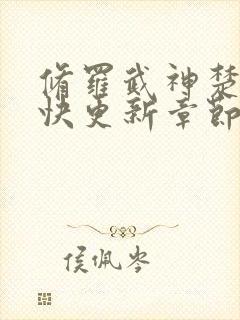 脩羅武神楚
快更新章節
侯佩岑